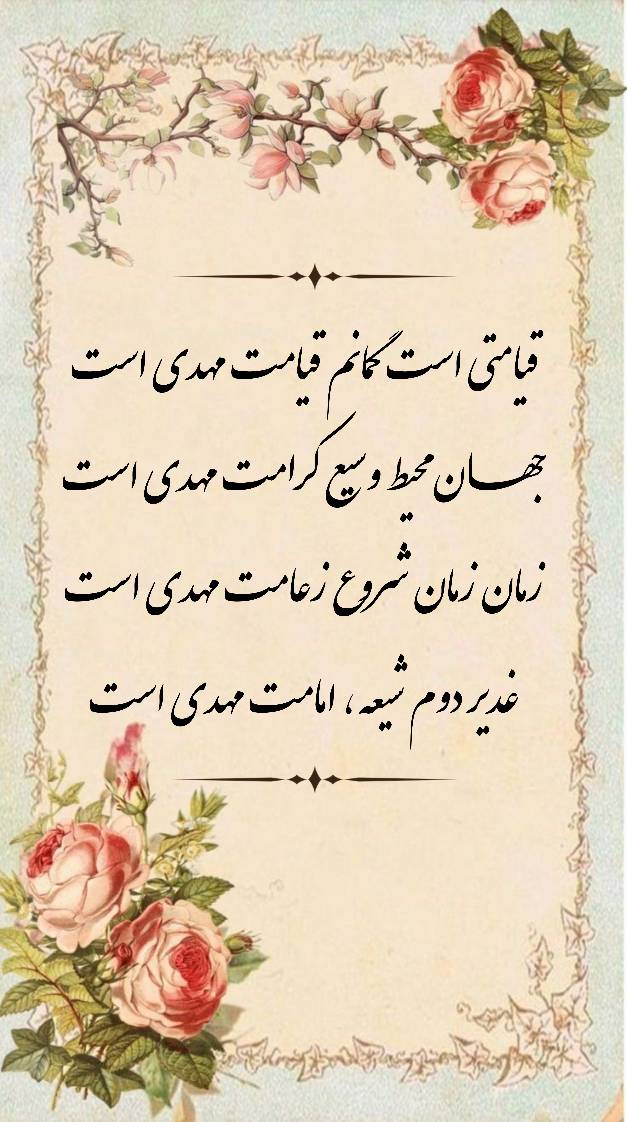 قیامتی است گمانم قیامت مهدی است
جهان محیط وسیع کرامت مهدی است
زمان زمان شروع زعامت مهدی است
غدیر دوم شیعه، امامت مهدی است